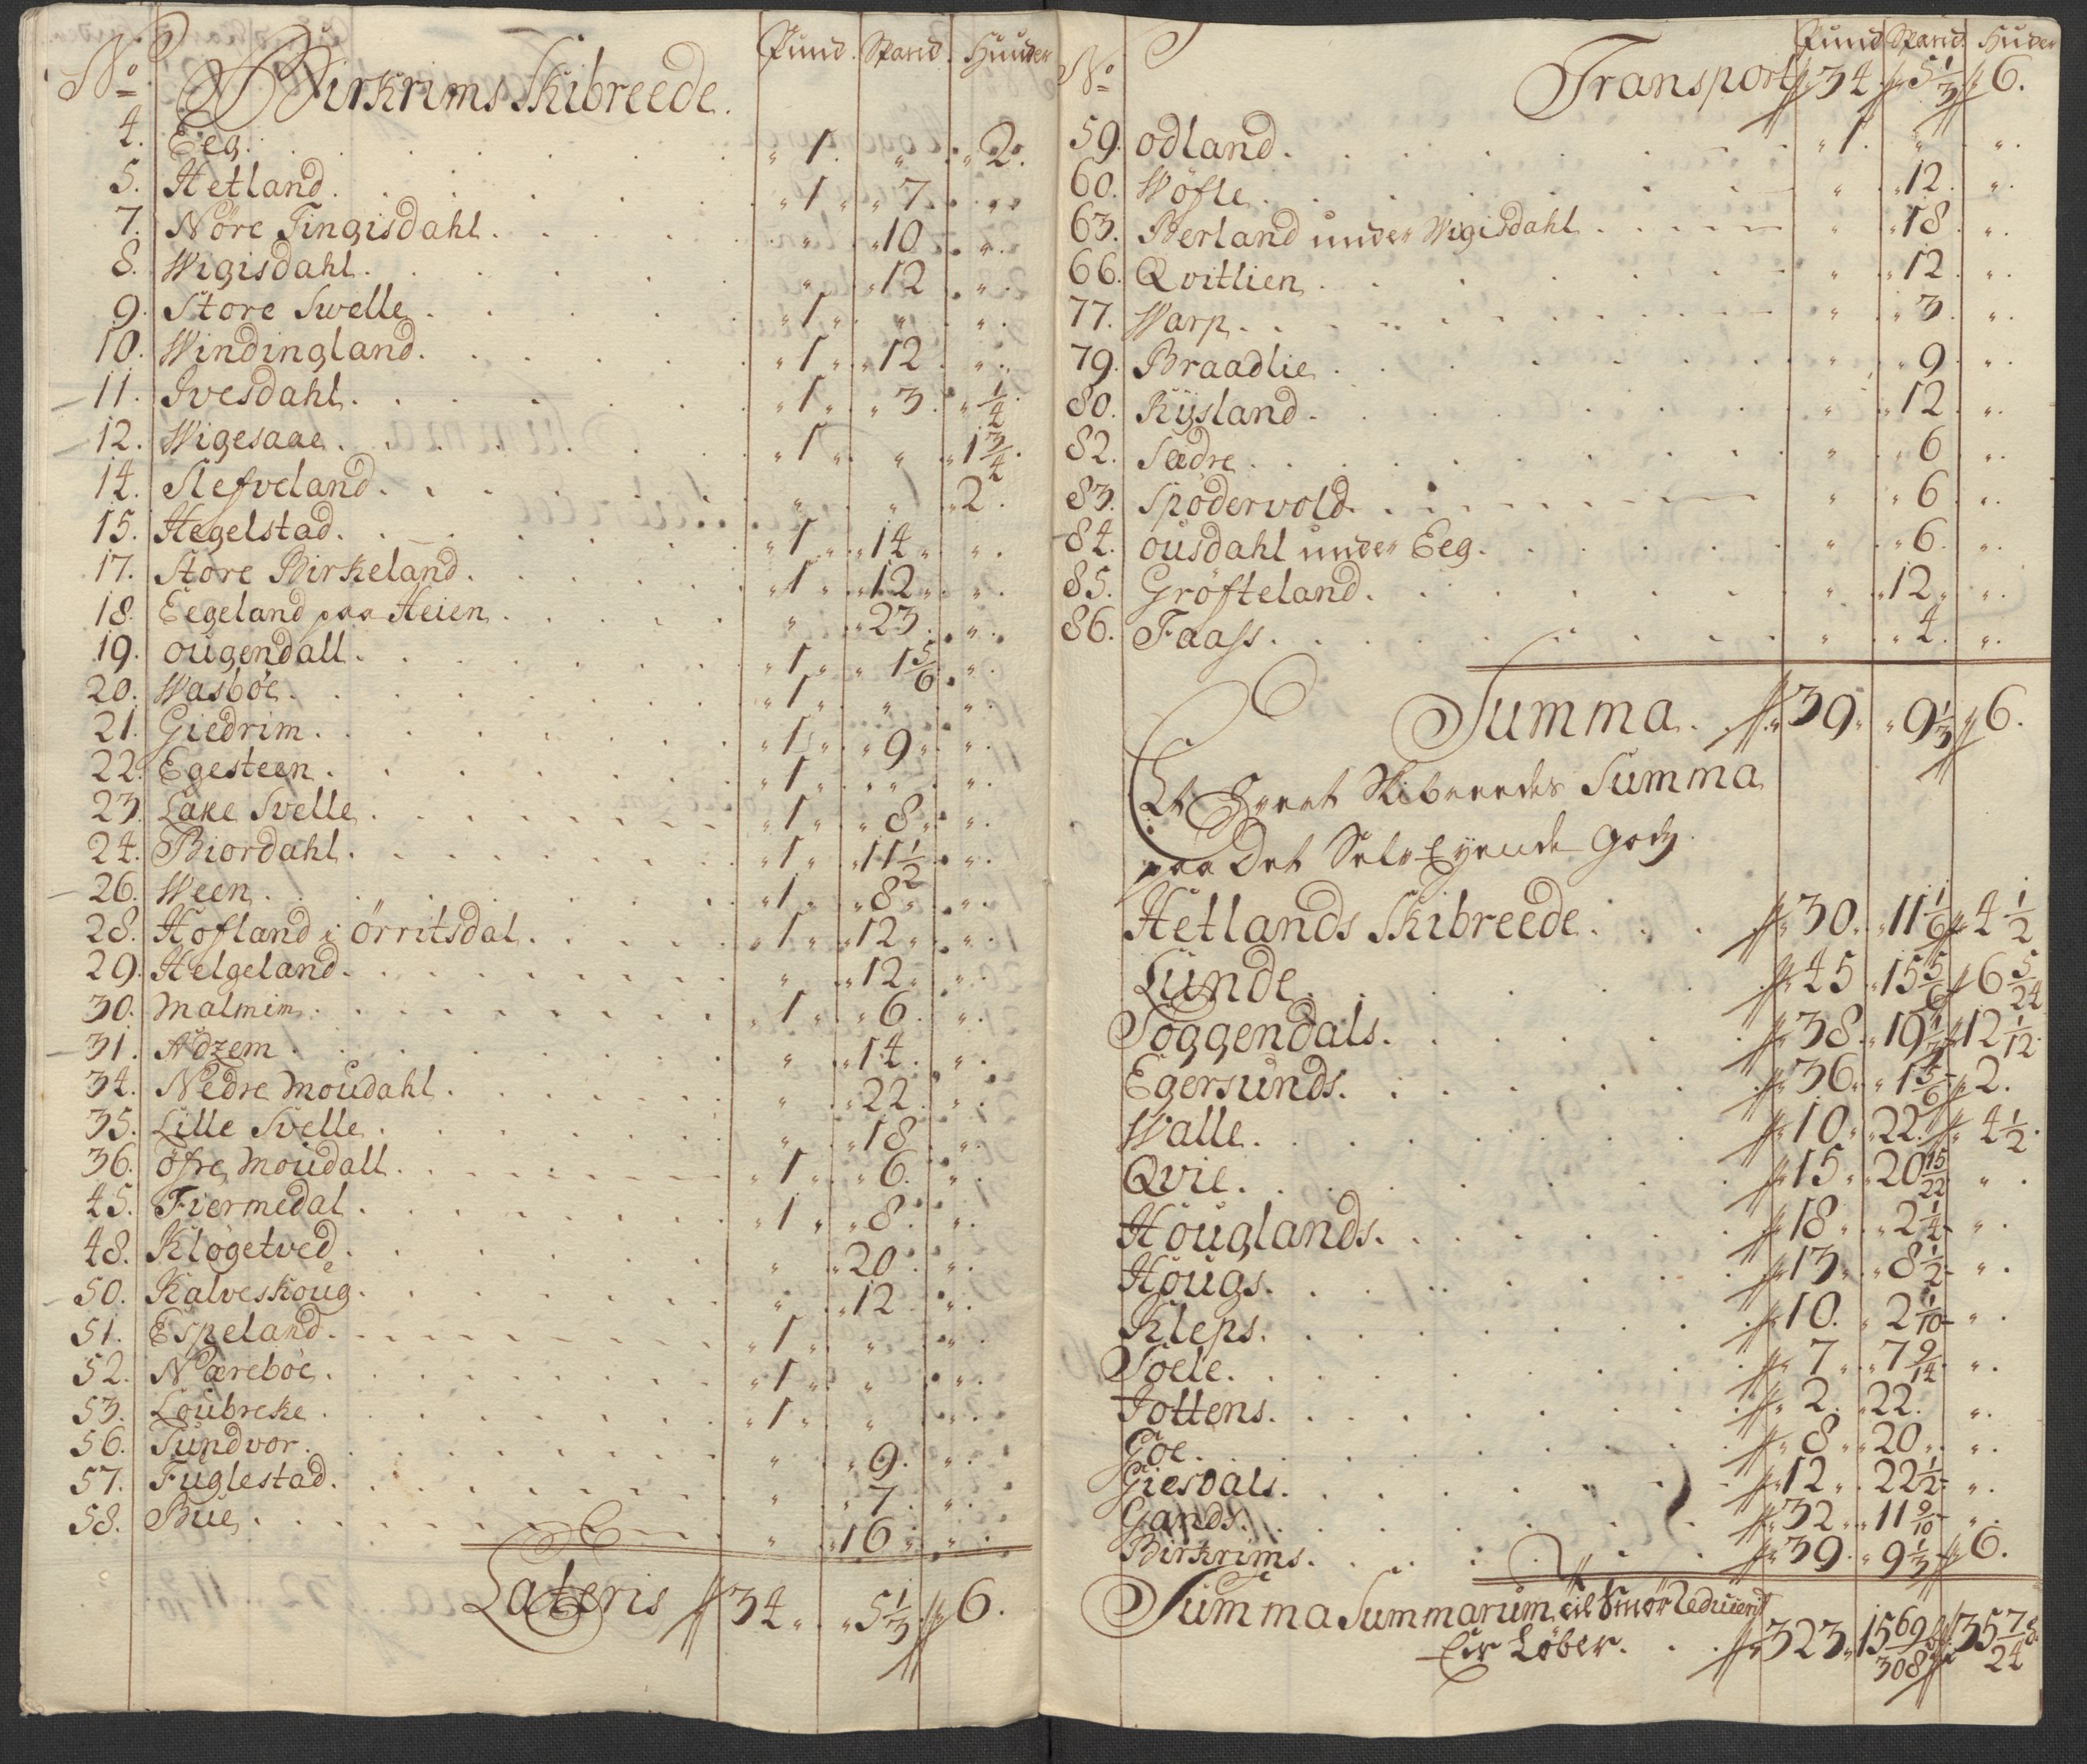 No Birkrims Skibreede. Pund. Spand. Huuder
4. Eeg. 1. " 2.
5. Hetland. 1 7. "
7. Nöre Tingisdahl. " 10 "
8. Wigisdahl. " 12 "
9. Store Swelle. 1 " "
10. Windingland. 1 12 "
11. Ivesdahl. 1 3. 1/4
12. Wigesaae. 1 " 1 3/4
14. Slefveland. " " 2.
15. Hegelstad. 1 14 "
17. Store Birkeland. 1 12 "
18. Eegeland paa Heien. " 23. "
19. ougendall. 1 1 5/6 "
20. Wasböe. 1 " "
21. Giedrim. 1 9 "
22. Egesteen. 1 " "
23. Lake Svelle. 1 8 "
24. Biordahl. 1 11 1/2 "
26. Ween. 1 8 "
28. Hofland i Örritsdal. 1 12 "
29. Helgeland. " 12 "
30. Malmim. 1 6. "
31. Adzem. " 14. "
34. Nedre Moudahl. " 22. "
35. Lille Svelle. " 18. "
36. öfre Moudall. 1 6. "
45. Fiermedal. 1 8. "
48. Klogetved. " 20. "
50. Kalveskoug. " 12 "
51. Espeland. 1 " "
52. Næreböe. 1 " "
53. Loubreke. 1 " "
56. Sundvor. " 9. "
57. Fuglestad. " 7. "
58. Bue. " 16 "
Lateris 34 " 5 1/3 6.
No Pund Spand. Huder
Transport 34. 5 1/3 6.
59. odland. 1. " "
60. Wöfle. " 12. "
63. Berland under Wigisdahl. " 18. "
66. Qvitlien. " 12. "
77. Warp. " 3. "
79. Braadlie. " 9 "
80. Rÿsland. " 12. "
82. Sædre. " 6 "
83. Spödervold. " 6 "
84. ousdahl under Eeg. " 6. "
85. Gröfteland. " 12. "
86. Faass. " 4. "
Summa. 39 " 9 1/3 6.
Et Hvert Skibreedes Summa
paa Det Selv Eÿende Gods.
Hetlands Skibreede. 30. 11 1/6 4 1/2
Lunde. 45 15 5/6 6 5/24
Soggendals. 38. 19 1/3 12 1/12
Egersunds. 36. 1 5/6 2.
Walle. 10. 22. 4 1/2.
Qvie. 15 20 15/22 "
Houglands. 18. 2 1/4 "
Hougs. 13. 8 1/2 "
Kleps. 10. 2 1/10 "
Soele. 7 7 9/14 "
Jottens. 2. 22. "
Goe. 8 20 "
Giesdals. 12 22 1/2 "
Gands. 32 11 9/10 "
Birkrims. 39. 9 1/3 6.
Summa Summarum til Smör Reducerit
Er Löber. 323. 15 69/308 35 7/24